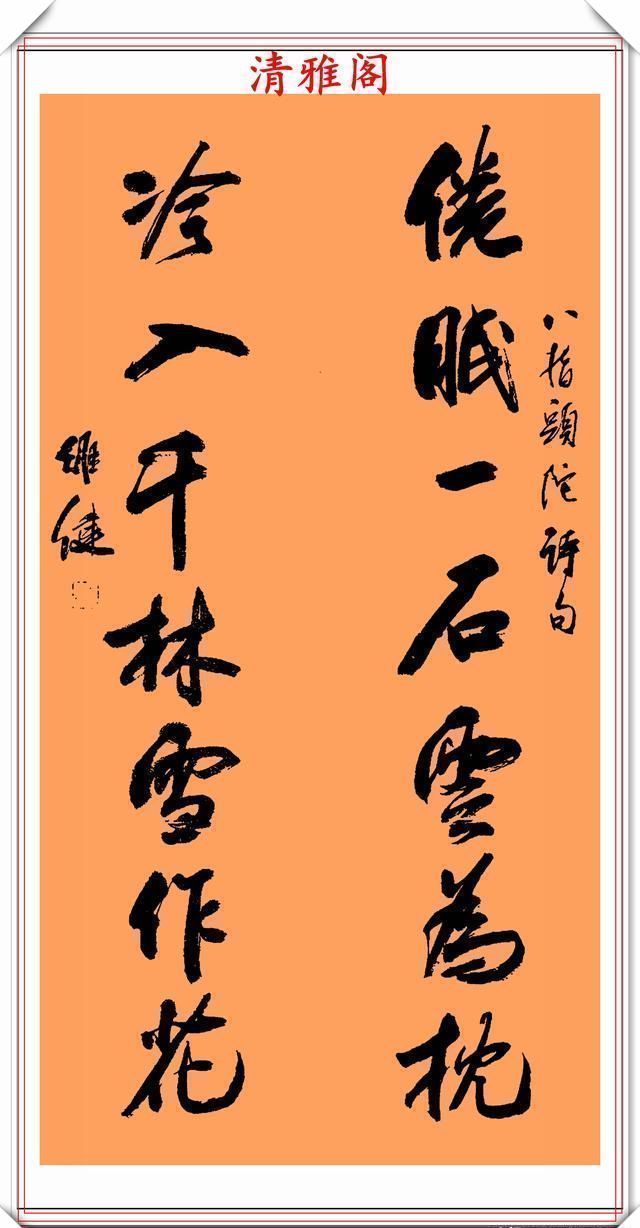 清雅阁
八指頭陀詩句
倦眠一石雲為枕
冷入千林雪作花
雄健